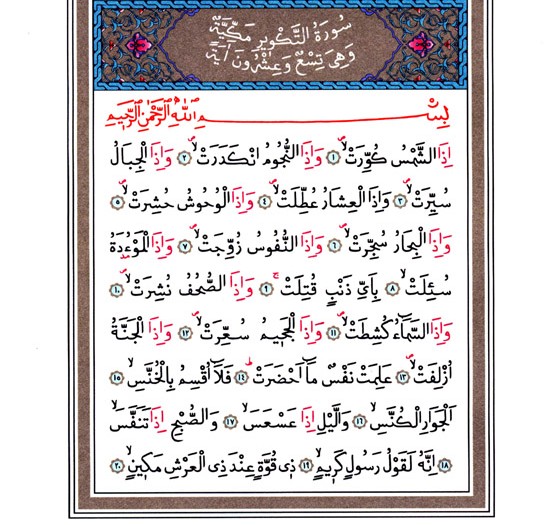 سُورَةُ التَّكْوِيرِ مَكِّيَّةٌ
وَهِيَ تِسْعٌ وَعِشْرُونَ اٰيَةً
بِسْمِ اللّٰهِ الرَّحْمٰنِ الرَّحِيمِ
اِذَا الشَّمْسُ كُوِّرَتْ ١ وَاِذَا النُّجُومُ انْكَدَرَتْ ٢ وَاِذَا الْجِبَالُ
سُيِّرَتْ ٣ وَاِذَا الْعِشَارُ عُطِّلَتْ ٤ وَاِذَا الْوُحُوشُ حُشِرَتْ ٥
وَاِذَا الْبِحَارُ سُجِّرَتْ ٦ وَاِذَا النُّفُوسُ زُوِّجَتْ ٧ وَاِذَا الْمَوْءُدَةُ
سُئِلَتْ ٨ بِاَيِّ ذَنْبٍ قُتِلَتْ ٩ وَاِذَا الصُّحُفُ نُشِرَتْ ١٠
وَاِذَا السَّمَاءُ كُشِطَتْ ١١ وَاِذَا الْجَحِيمُ سُعِّرَتْ ١٢ وَاِذَا الْجَنَّةُ
اُزْلِفَتْ ١٣ عَلِمَتْ نَفْسٌ مَا اَحْضَرَتْ ١٤ فَلَا اُقْسِمُ بِالْخُنَّسِ ١٥
اَلْجَوَارِ الْكُنَّسِ ١٦ وَالَّيْلِ اِذَا عَسْعَسَ ١٧ وَالصُّبْحِ اِذَا تَنَفَّسَ
١٨ اِنَّهُ لَقَوْلُ رَسُولٍ كَرِيمٍ ١٩ ذِي قُوَّةٍ عِنْدَ ذِي الْعَرْشِ مَكِينٍ ٢٠